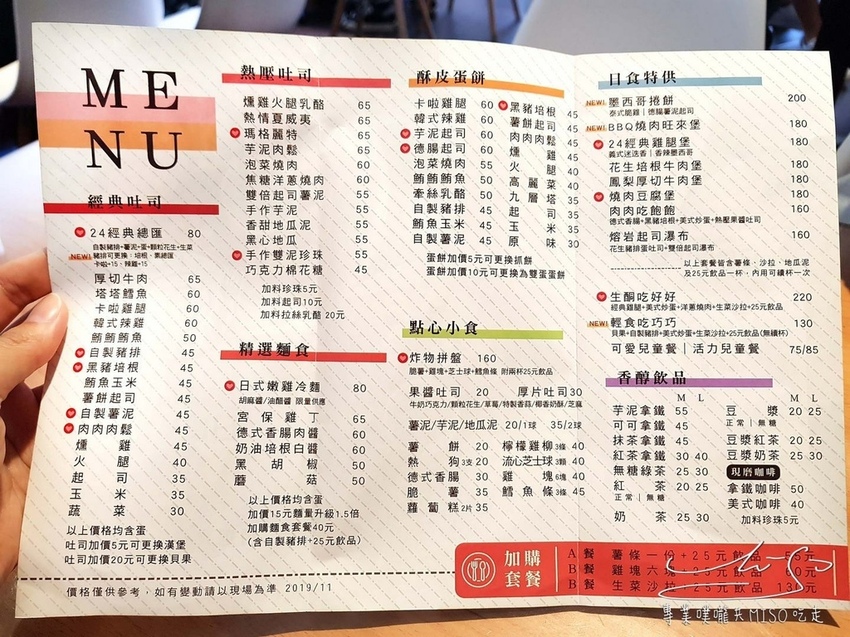 MENU
經典吐司
24經典總匯 80
自製豬排+薯泥+蛋+顆粒花生+生菜
NEW! 豬肉可更換:培根、素總匯
卡啦+15、辣雞+15
厚切牛肉 65
塔塔鱈魚 60
卡啦雞腿 60
韓式辣雞 60
鮪鮪鮪魚 50
自製豬排 45
黑豬培根 45
鮪魚玉米 45
薯餅起司 45
自製薯泥 45
肉肉肉鬆 45
燻雞 45
火腿 40
起司 35
玉米 35
蔬菜 30
以上價格均含蛋
吐司加價5元可更換漢堡
吐司加價20元可更換貝果
熱壓吐司
燻雞火腿乳酪 65
熱情夏威夷 65
瑪格麗特 65
芋泥肉鬆 65
泡菜燒肉 60
焦糖洋蔥燒肉 60
雙倍起司薯泥 55
手作芋泥 55
香甜地瓜泥 55
黑心地瓜 55
手作雙泥珍珠 55
巧克力棉花糖 45
加料珍珠5元
加料起司10元
加料拉絲乳酪 20元
精選麵食
日式嫩雞冷麵 80
胡麻醬/油醋醬 限量供應
宮保雞丁 65
德式香腸肉醬 60
奶油培根白醬 60
黑胡椒 50
蘑菇 50
以上價格均含蛋
加價15元麵量升級1.5倍
加購麵食套餐40元
(含自製豬排+25元飲品)
酥皮蛋餅
卡啦雞腿 60
韓式辣雞 60
芋泥起司 60
德腸起司 60
泡菜燒肉 55
鮪鮪鮪魚 50
牽絲乳酪 50
自製豬排 45
鮪魚玉米 45
自製薯泥 45
黑豬培根 45
薯餅起司 45
肉肉肉鬆 45
燻雞 45
火腿 40
高麗菜 40
九層塔 35
起司 35
玉米 35
原味 30
蛋餅加價5元可更換抓餅
蛋餅加價10元可更換為雙蛋蛋餅
點心小食
炸物拼盤 160
脆薯+雞塊+芝士球+鱈魚條 附兩杯25元飲品
果醬吐司 20 厚片吐司30
牛奶巧克力/顆粒花生/草莓/特製香蒜/椰香奶酥/芝麻
薯泥/芋泥/地瓜泥 20/1球 35/2球
薯餅 20 檸檬雞柳3條 40
熱狗3支 20 流心芝士球3顆 40
德式香腸 30 雞塊6塊 40
脆薯 35 鱈魚條3條 45
蘿蔔糕2片 35
日食特供
NEW! 墨西哥捲餅 200
泰式脆雞|德腸薯泥起司
NEW! BBQ燒肉旺來堡 180
24經典雞腿堡 180
義式迷迭香|香辣墨西哥
花生培根牛肉堡 180
鳳梨厚切牛肉堡 180
燒肉豆腐堡 180
肉肉吃飽飽 160
德式香腸+黑豬培根+美式炒蛋+熱壓果醬吐司
熔岩起司瀑布 160
花生豬排蛋吐司+雙倍起司瀑布
以上套餐皆含薯條、沙拉、地瓜泥
及25元飲品一杯,內用可續杯一次
生酮吃好好 220
經典雞腿+美式炒蛋+洋蔥燒肉+生菜沙拉+25元飲品
NEW! 輕食吃巧巧 130
貝果+自製豬排+美式炒蛋+生菜沙拉+25元飲品(無續杯)
可愛兒童餐|活力兒童餐 75/85
香醇飲品
M L
芋泥拿鐵 55
可可拿鐵 45
抹茶拿鐵 45
紅茶拿鐵 30 40
無糖綠茶 25 30
紅茶 20 25
正常|無糖
奶茶 25 30
M L
豆漿 20 25
正常|無糖
豆漿紅茶 20 25
豆漿奶茶 25 30
現磨咖啡
拿鐵咖啡 50
美式咖啡 40
加料珍珠5元
加購套餐
A餐 薯條一份+25元飲品 55元
B餐 雞塊六塊+25元飲品 60元
B餐 生菜沙拉+25元飲品 130元
價格僅供參考,如有變動請以現場為準 2019/11
畢業噗嚨共MISO吃走